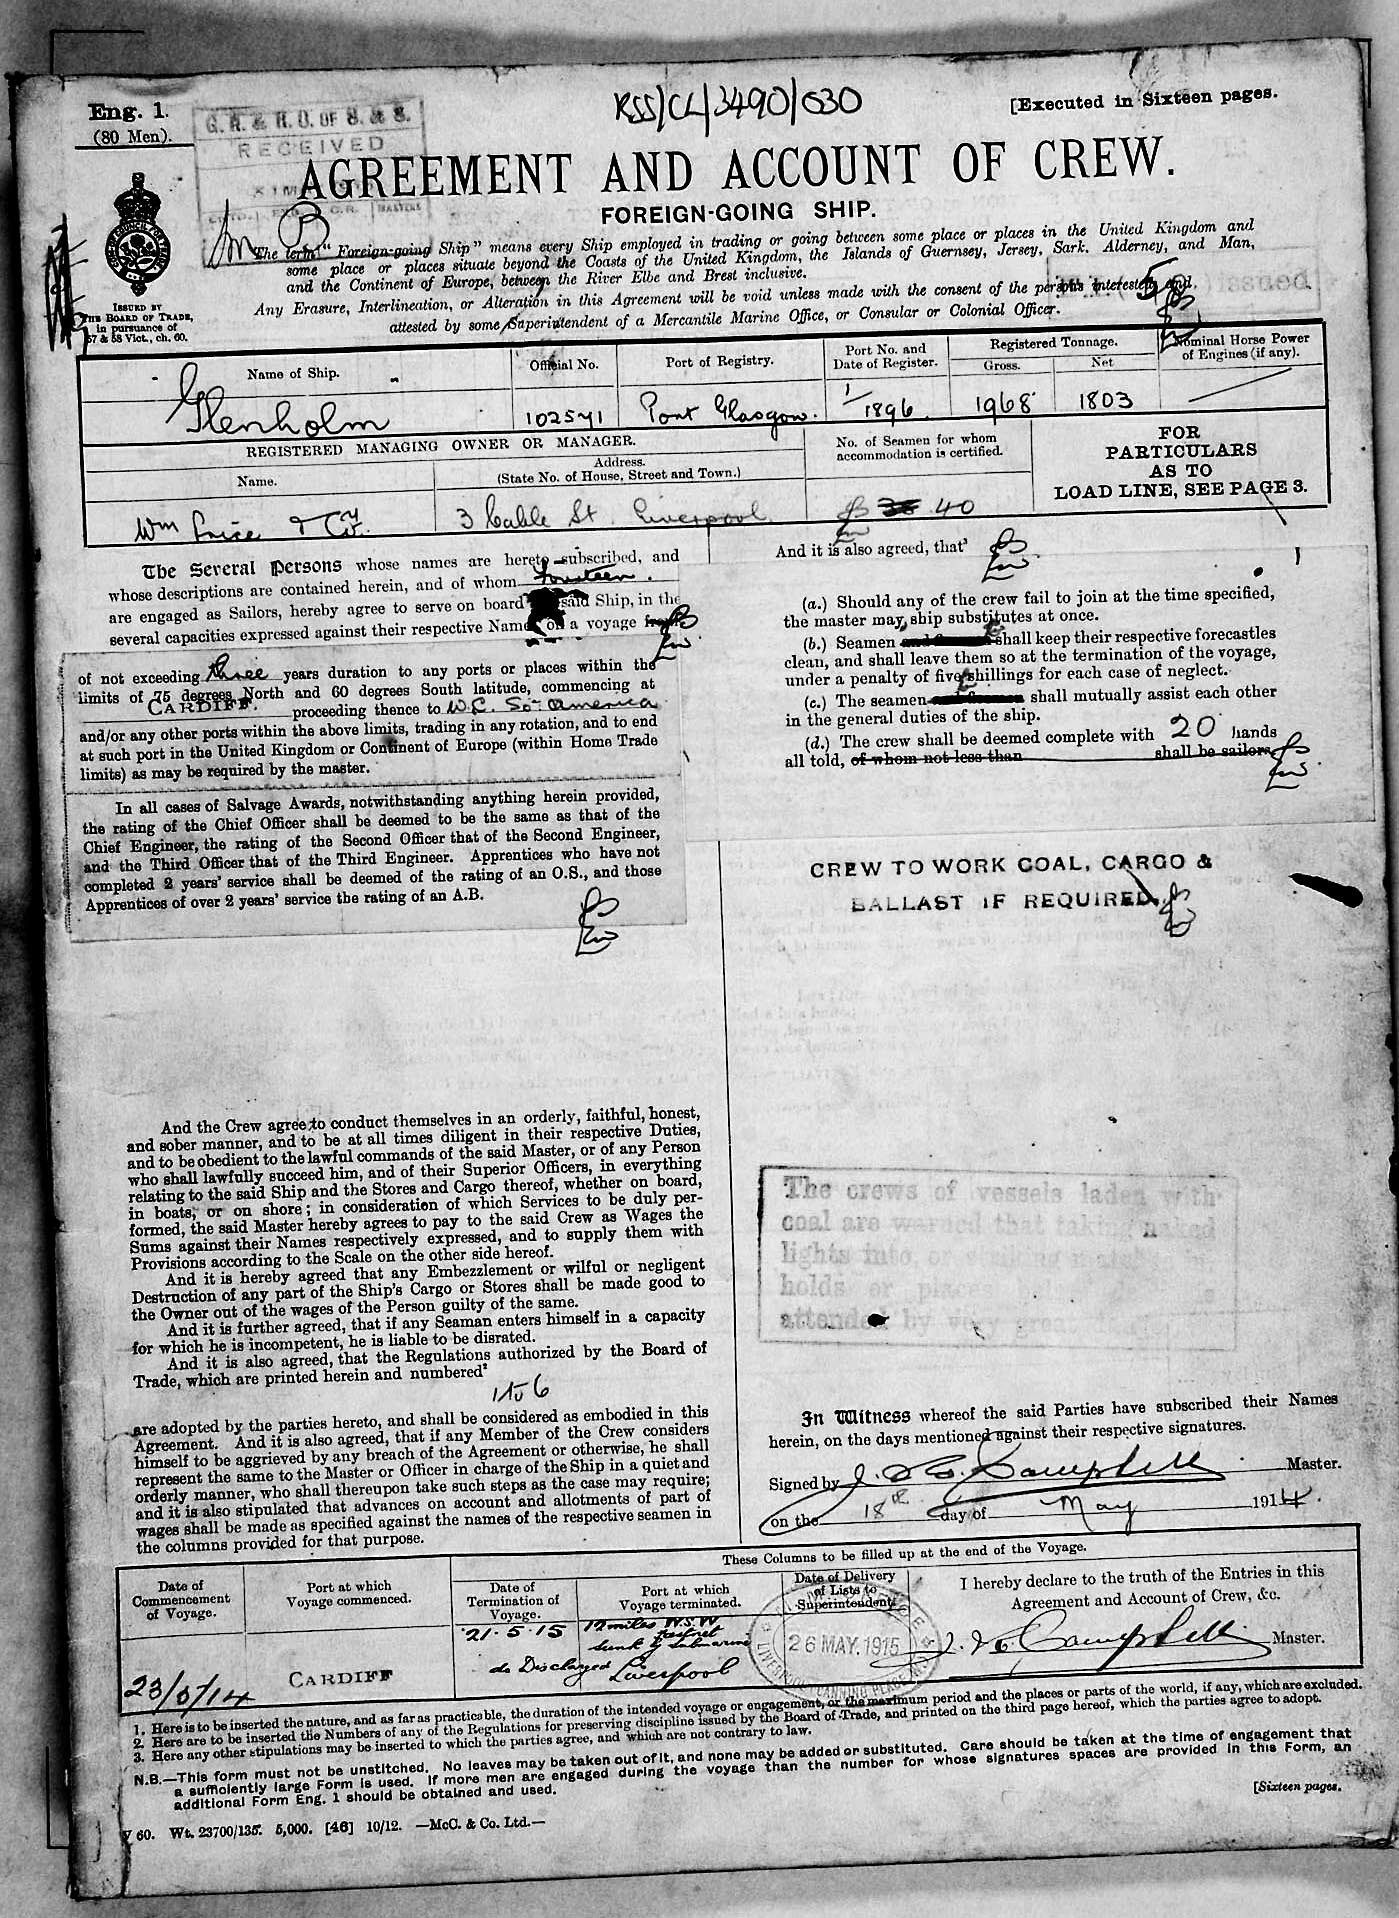 Eng. 1.
(80 Men).
RSS/CL/3490/630
[Executed in Sixteen pages.
G. R. & R. O. OF S. & S.
RECEIVED
AGREEMENT AND ACCOUNT OF CREW.
FOREIGN-GOING SHIP.
The term "Foreign-going Ship" means every Ship employed in trading or going between some place or places in the United Kingdom and
some place or places situate beyond the Coasts of the United Kingdom, the Islands of Guernsey, Jersey, Sark, Alderney, and Man,
and the Continent of Europe, between the River Elbe and Brest inclusive.
Any Erasure, Interlineation, or Alteration in this Agreement will be void unless made with the consent of the persons interested, and
attested by some Superintendent of a Mercantile Marine Office, or Consular or Colonial Officer.
ISSUED BY
THE BOARD OF TRADE,
in pursuance of
57 & 58 Vict., ch. 60.
Name of Ship.
Official No.
Port of Registry.
Port No. and
Date of Register.
Registered Tonnage.
Gross.
Net
Nominal Horse Power
of Engines (if any).
Glenholm
102571
Port Glasgow.
1/1896
1968
1803
REGISTERED MANAGING OWNER OR MANAGER.
Name.
Address.
(State No. of House, Street and Town.)
No. of Seamen for whom
accommodation is certified.
FOR
PARTICULARS
AS TO
LOAD LINE, SEE PAGE 3.
Wm Price & Coy.
3 Cable St Liverpool
40
The Several Persons whose names are hereto subscribed, and
whose descriptions are contained herein, and of whom fourteen.
are engaged as Sailors, hereby agree to serve on board said Ship, in the
several capacities expressed against their respective Names on a voyage from
of not exceeding three years duration to any ports or places within the
limits of 75 degrees North and 60 degrees South latitude, commencing at
CARDIFF. proceeding thence to W.C. So. America
and/or any other ports within the above limits, trading in any rotation, and to end
at such port in the United Kingdom or Continent of Europe (within Home Trade
limits) as may be required by the master.
In all cases of Salvage Awards, notwithstanding anything herein provided,
the rating of the Chief Officer shall be deemed to be the same as that of the
Chief Engineer, the rating of the Second Officer that of the Second Engineer,
and the Third Officer that of the Third Engineer. Apprentices who have not
completed 2 years' service shall be deemed of the rating of an O.S., and those
Apprentices of over 2 years' service the rating of an A.B.
And the Crew agree to conduct themselves in an orderly, faithful, honest,
and sober manner, and to be at all times diligent in their respective Duties,
and to be obedient to the lawful commands of the said Master, or of any Person
who shall lawfully succeed him, and of their Superior Officers, in everything
relating to the said Ship and the Stores and Cargo thereof, whether on board,
in boats, or on shore; in consideration of which Services to be duly per-
formed, the said Master hereby agrees to pay to the said Crew as Wages the
Sums against their Names respectively expressed, and to supply them with
Provisions according to the Scale on the other side hereof.
And it is hereby agreed that any Embezzlement or wilful or negligent
Destruction of any part of the Ship's Cargo or Stores shall be made good to
the Owner out of the wages of the Person guilty of the same.
And it is further agreed, that if any Seaman enters himself in a capacity
for which he is incompetent, he is liable to be disrated.
And it is also agreed, that the Regulations authorized by the Board of
Trade, which are printed herein and numbered²
1 to 6
are adopted by the parties hereto, and shall be considered as embodied in this
Agreement. And it is also agreed, that if any Member of the Crew considers
himself to be aggrieved by any breach of the Agreement or otherwise, he shall
represent the same to the Master or Officer in charge of the Ship in a quiet and
orderly manner, who shall thereupon take such steps as the case may require;
and it is also stipulated that advances on account and allotments of part of
wages shall be made as specified against the names of the respective seamen in
the columns provided for that purpose.
And it is also agreed, that³
(a.) Should any of the crew fail to join at the time specified,
the master may ship substitutes at once.
(b.) Seamen shall keep their respective forecastles
clean, and shall leave them so at the termination of the voyage,
under a penalty of five shillings for each case of neglect.
(c.) The seamen shall mutually assist each other
in the general duties of the ship.
(d.) The crew shall be deemed complete with 20 hands
all told, of whom not less than shall be sailors
CREW TO WORK COAL, CARGO &
BALLAST IF REQUIRED.
The crews of vessels laden with
coal are warned that taking naked
lights into
holds or places
attended by very great
In Witness whereof the said Parties have subscribed their Names
herein, on the days mentioned against their respective signatures.
Signed by Campbell Master.
on the 18th day of May 1914.
These Columns to be filled up at the end of the Voyage.
Date of
Commencement
of Voyage.
Port at which
Voyage commenced.
Date of
Termination of
Voyage.
Port at which
Voyage terminated.
Date of Delivery
of Lists to
Superintendent
I hereby declare to the truth of the Entries in this
Agreement and Account of Crew, &c.
23/5/14
CARDIFF
21.5.15
12 miles W.S.W
Fastnet
Sunk by Submarine
do Discharged Liverpool
26 MAY. 1915
Campbell Master.
1. Here is to be inserted the nature, and as far as practicable, the duration of the intended voyage or engagement, or the maximum period and the places or parts of the world, if any, which are excluded.
2. Here are to be inserted the Numbers of any of the Regulations for preserving discipline issued by the Board of Trade, and printed on the third page hereof, which the parties agree to adopt.
3. Here any other stipulations may be inserted to which the parties agree, and which are not contrary to law.
N.B.—This form must not be unstitched. No leaves may be taken out of it, and none may be added or substituted. Care should be taken at the time of engagement that
a sufficiently large Form is used. If more men are engaged during the voyage than the number for whose signatures spaces are provided in this Form, an
additional Form Eng. 1 should be obtained and used.
[Sixteen pages.
60. Wt. 23700/135. 5,000. [46] 10/12. —McC. & Co. Ltd.—